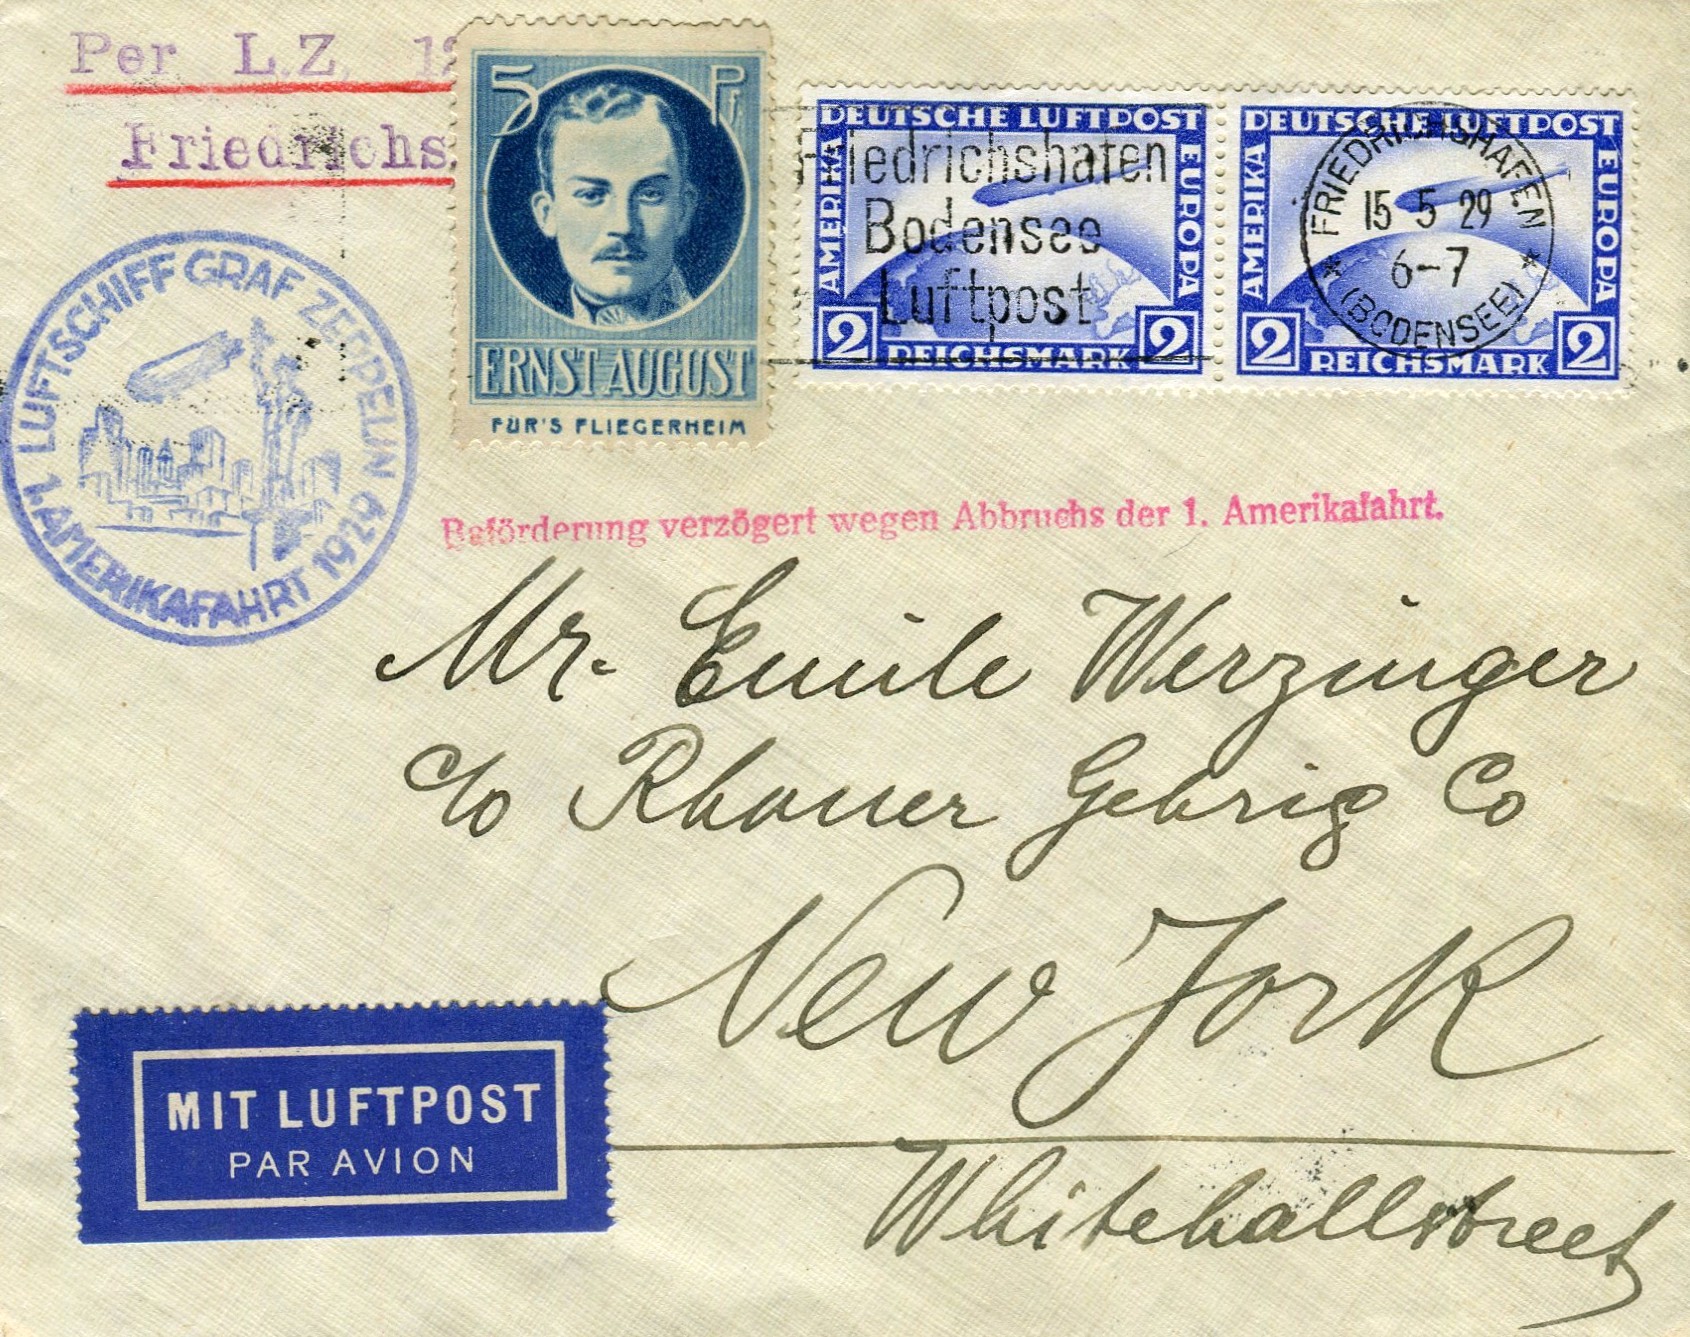 Per L.Z. 12
Friedrichs
5 Pf.
ERNST AUGUST
FÜR'S FLIEGERHEIM
DEUTSCHE LUFTPOST
AMERIKA
EUROPA
2 REICHSMARK 2
Friedrichshafen
Bodensee
Luftpost
DEUTSCHE LUFTPOST
AMERIKA
EUROPA
2 REICHSMARK 2
FRIEDRICHSHAFEN
15 5 29
6-7
(BODENSEE)
LUFTSCHIFF GRAF ZEPPELIN
1. AMERIKAFAHRT 1929
Beförderung verzögert wegen Abbruchs der 1. Amerikafahrt.
Mr. Emile Werzinger
c/o Rhoner Gehrig Co
New York
Whitehallstreet
MIT LUFTPOST
PAR AVION